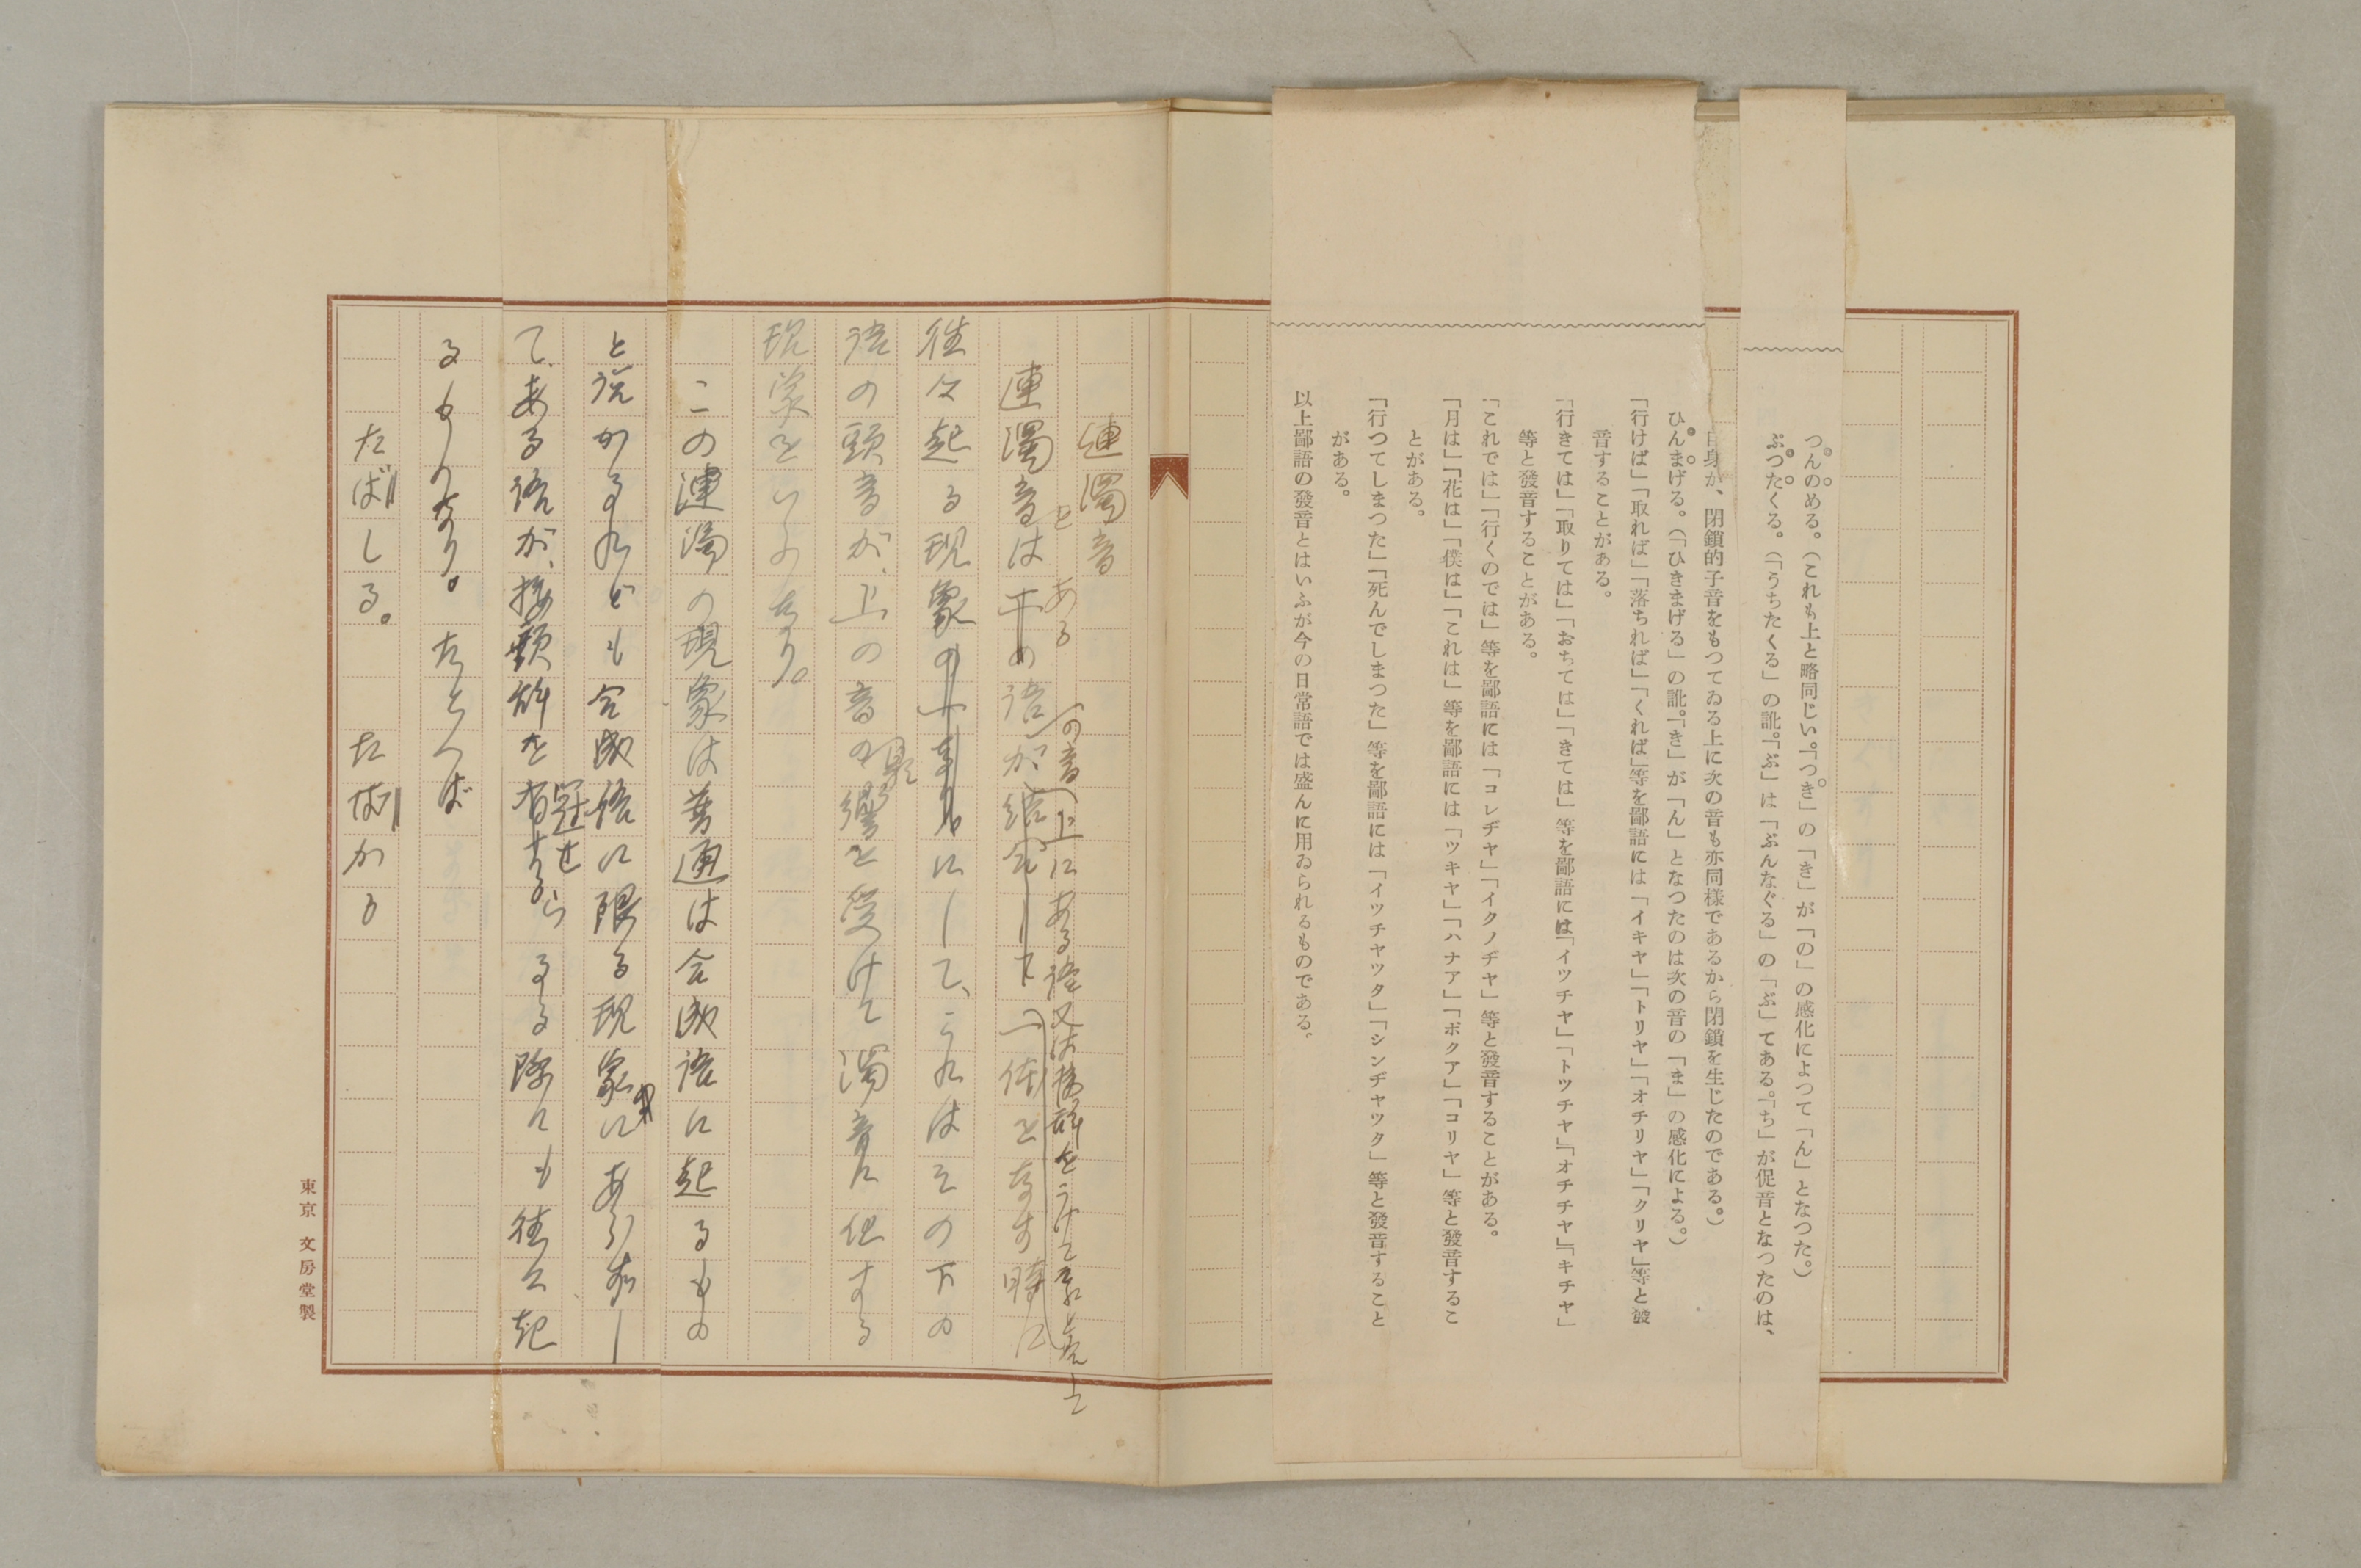 つんのめる。(これも上と略同じい。「つき」の「き」が「の」の感化によつて「ん」となつた。)
ぶつたくる。(「うちたくる」の訛。「ぶ」は「ぶんなぐる」の「ぶ」てある。「ち」が促音となつたのは、
自身が、閉鎖的子音をもつてゐる上に次の音も亦同樣であるから閉鎖を生じたのである。)
ひんまげる。(「ひきまげる」の訛。「き」が「ん」となつたのは次の音の「ま」の感化による。)
「行けば」「取れば」「落ちれば」「くれば」等を鄙語には「イキヤ」「トリヤ」「オチリヤ」「クリヤ」等と發
音することがある。
「行きては」「取りては」「おちては」「きては」等を鄙語には「イツチヤ」「トツチヤ」「オチチヤ」「キチヤ」
等と發音することがある。
「これでは」「行くのでは」等を鄙語には「コレヂヤ」「イクノヂヤ」等と發音することがある。
「月は」「花は」「僕は」「これは」等を鄙語には「ツキヤ」「ハナア」「ボクア」「コリヤ」等と發音するこ
とがある。
「行つてしまつた」「死んでしまつた」等を鄙語には「イツチヤツタ」「シンヂヤツタ」等と發音すること
がある。
以上鄙語の發音とはいふが今の日常語では盛んに用ゐられるものである。
連濁音
連濁音は
ある語
の音
上にある語又は接辞をうけて
一体をなす時に
往々起る現象にして、これはその下の
語の頭音が、上の音の影響を受けて濁音に化する
現象をいふなり。
この連濁の現象は普通は合成語に起るもの
と説かるれども合成語に限る現象にあらずし
て、ある語が、接頭辞を冠せらるる際にも往々起
るものなり。たとへば
たばしる。 たばかる
東京 文房堂製